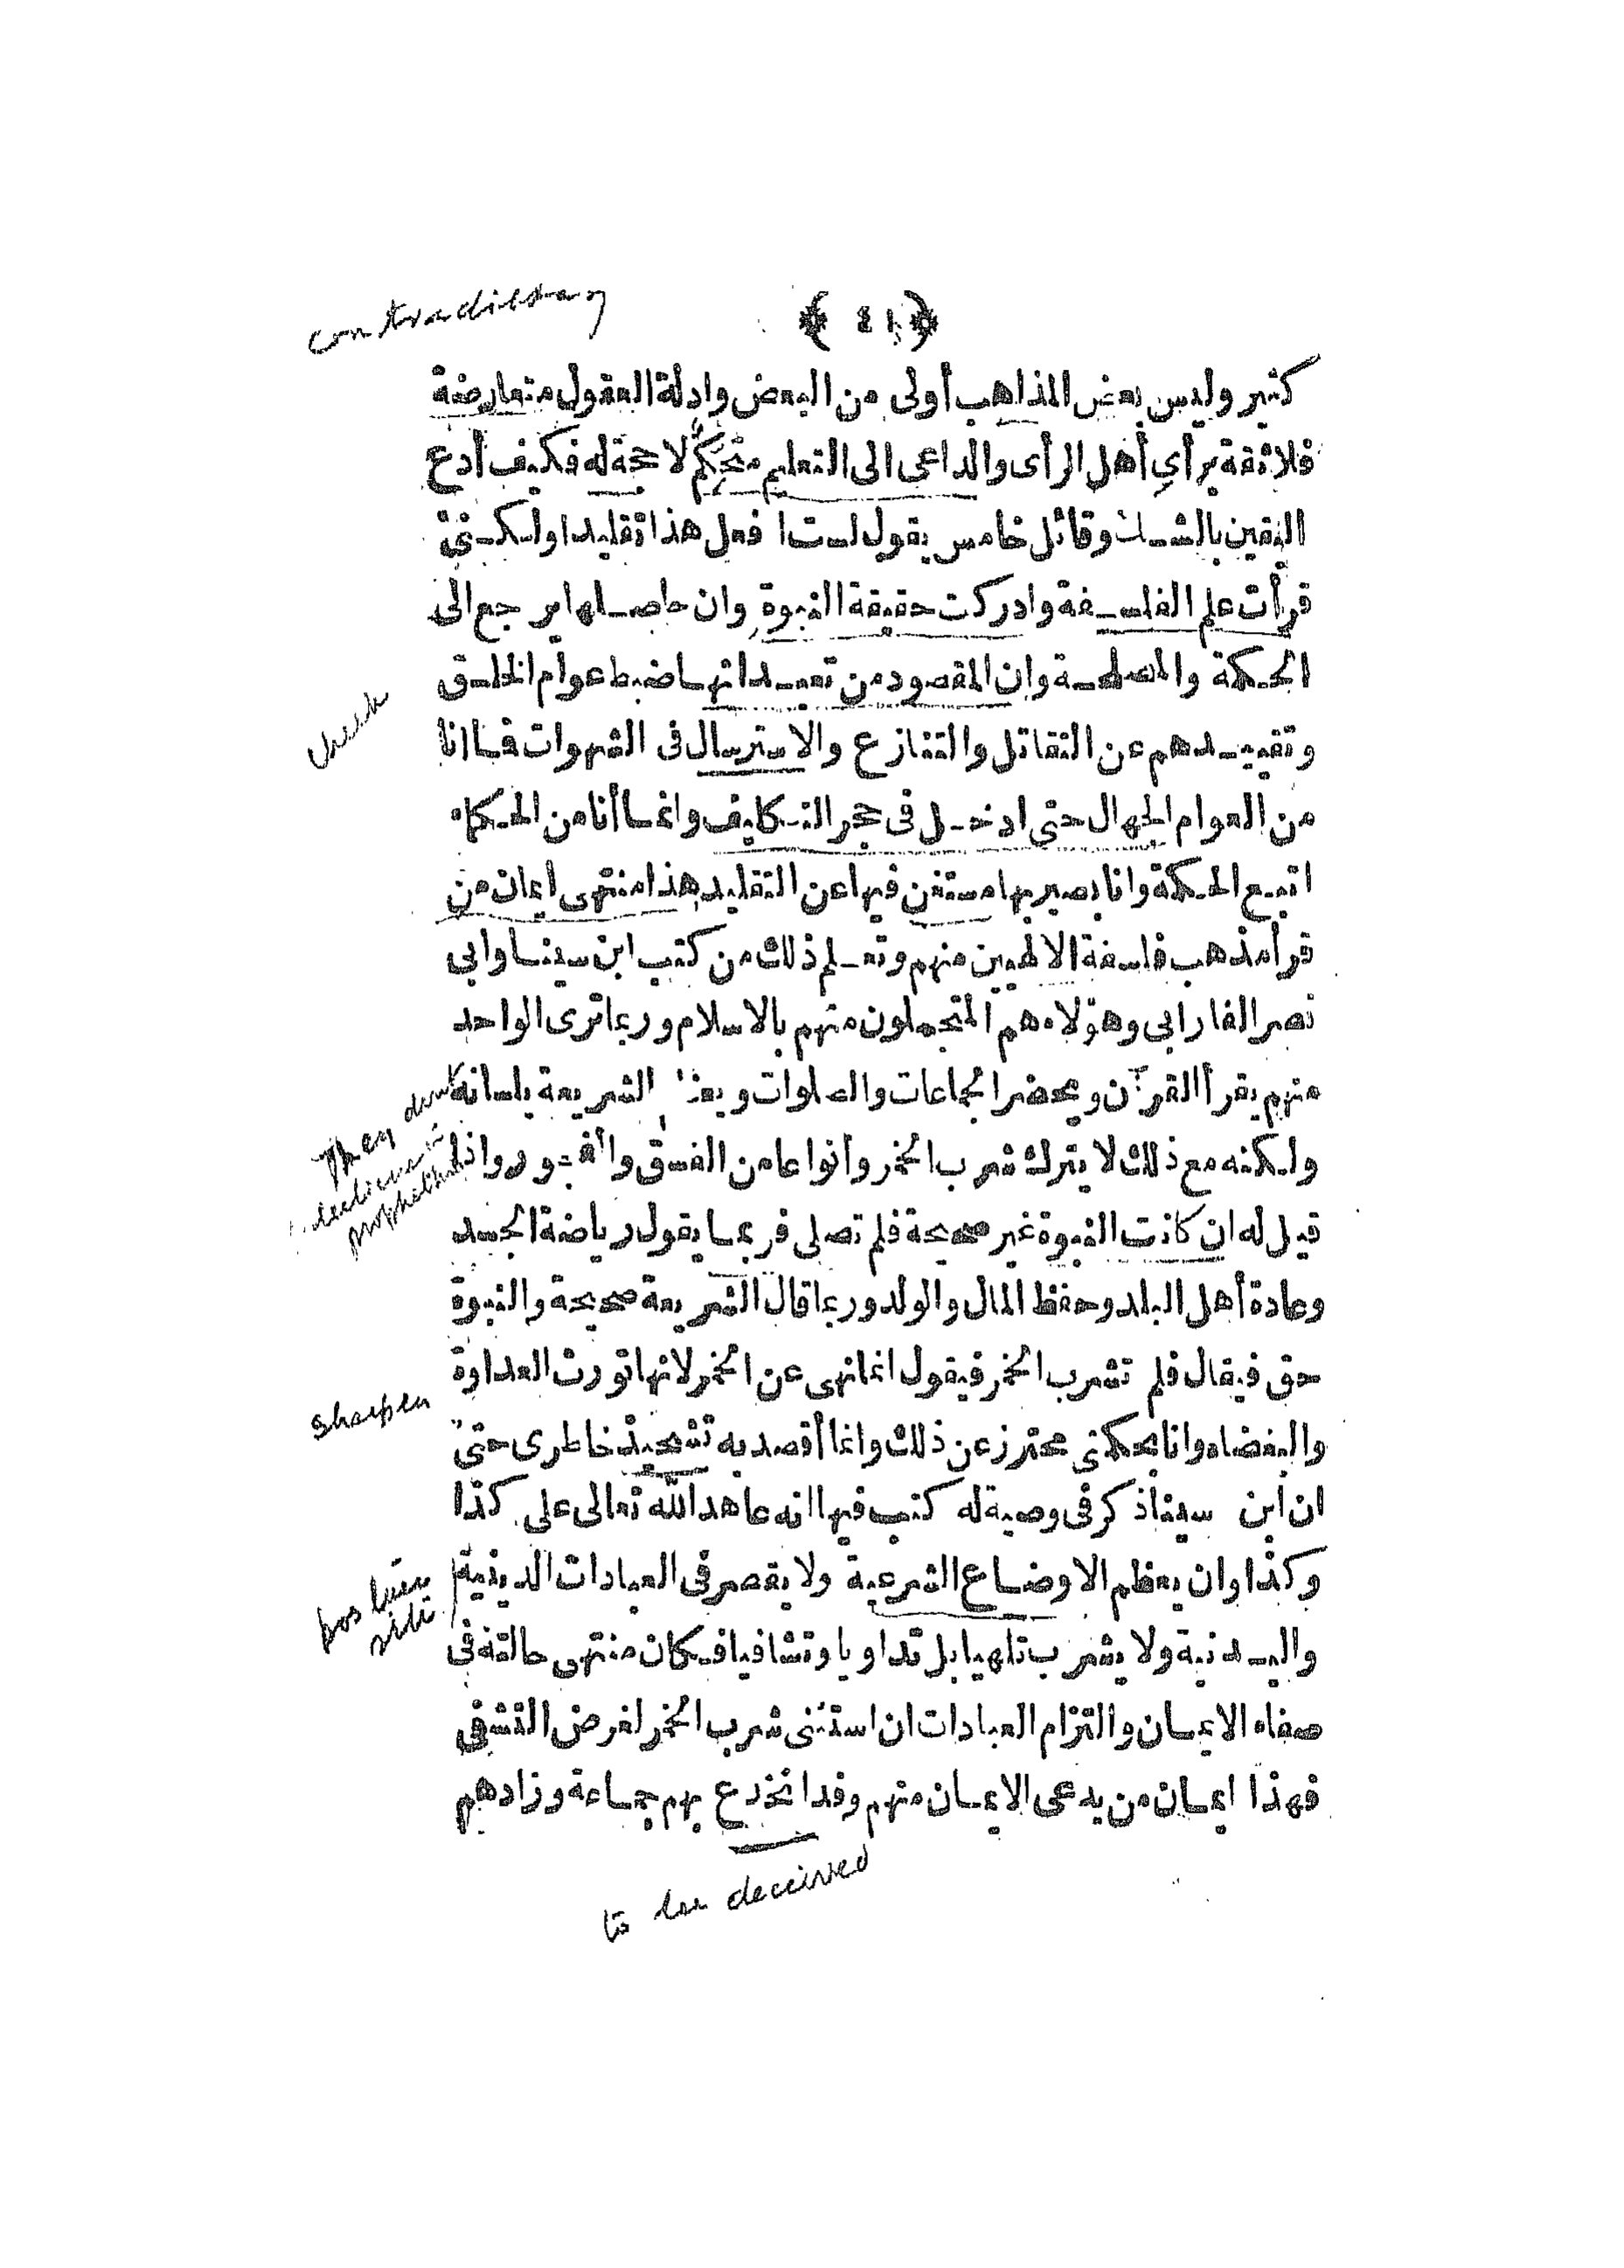 contradictory
﴿ ٤١ ﴾
كثير وليس بعض المذاهب أولى من البعض وادلة العقول متعارضة
فلا ثقة برأي أهل الرأى والداعى الى التعليم متحكم لا حجة له فكيف أدع
اليقين بالشك وقائل خامس يقول لست افعل هذا تقليدا ولكننى
قرأت علم الفلسفة وادركت حقيقة النبوة وان حاصلها يرجع الى
الحكمة والمصلحة وان المقصود من تعبداتها ضبط عوام الخلق
check
وتقييدهم عن التقاتل والتنازع والاسترسال فى الشهوات فما انا
من العوام الجهال حتى ادخل فى حجر التكليف وانما أنا من الحكماء
اتبع الحكمة وانا بصير بها مستغن فيها عن التقليد هذا منتهى ايمان من
قرأ مذهب فلسفة الالهيين منهم وتعلم ذلك من كتب ابن سينا وابى
نصر الفارابى وهؤلاء هم المتجملون منهم بالاسلام وربما ترى الواحد
منهم يقرأ القرآن ويحضر الجماعات والصلوات ويعظم الشريعة بلسانه
They don't
in
ولكنه مع ذلك لا يترك شرب الخمر وأنواعا من الفسق والفجور واذا
قيل له ان كانت النبوة غير صحيحة فلم تصلى فربما يقول رياضة الجسد
وعادة أهل البلد وحفظ المال والولد وربما قال الشريعة صحيحة والنبوة
حق فيقال فلم تشرب الخمر فيقول انما نهى عن الخمر لانها تورث العداوة
sharpen
والبغضاء وانا بحكمتى محترز عن ذلك وانما أقصد به تشحيذ خاطرى حتى
ان ابن سينا ذكر فى وصية له كتب فيها انه عاهد الله تعالى على كذا
وكذا وان يعظم الاوضاع الشرعية ولا يقصر فى العبادات الدينية
والبدنية ولا يشرب تلهيا بل تداويا وتشافيا فكان منتهى حالته فى
صفاء الايمان والتزام العبادات ان استثنى شرب الخمر لغرض التشفى
فهذا ايمان من يدعى الايمان منهم وقد انخدع بهم جماعة وزادهم
to be deceived